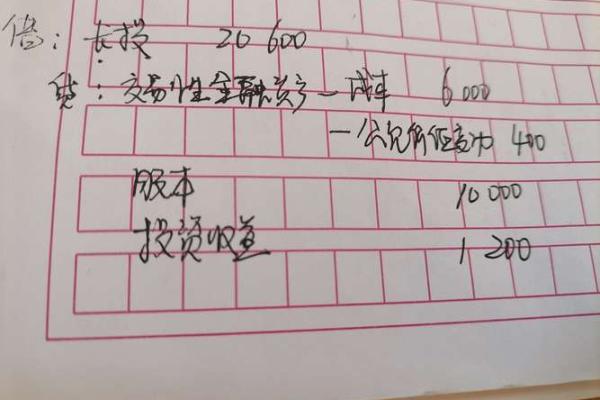 借：长投 20 600
贷：交易性金融资产－成本 6 000
－公允价值变动 400
股本 10 000
投资收益 1 200